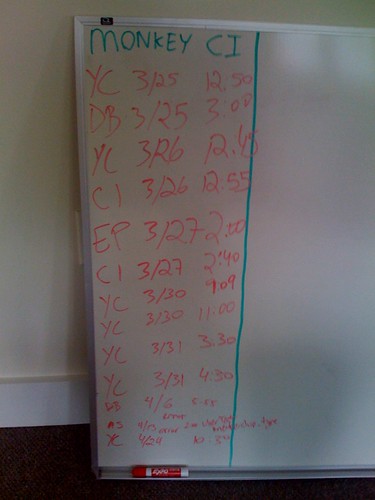 MONKEY CI
YC 3/25 12:50
DB 3/25 3:00
YC 3/26 12:45
CI 3/26 12:55
EP 3/27 2:00
CI 3/27 2:40
YC 3/30 9:09
YC 3/30 11:00
YC 3/31 3:30
YC 3/31 4:30
DB 4/6
error
AS error
YC 4/24
EXPO